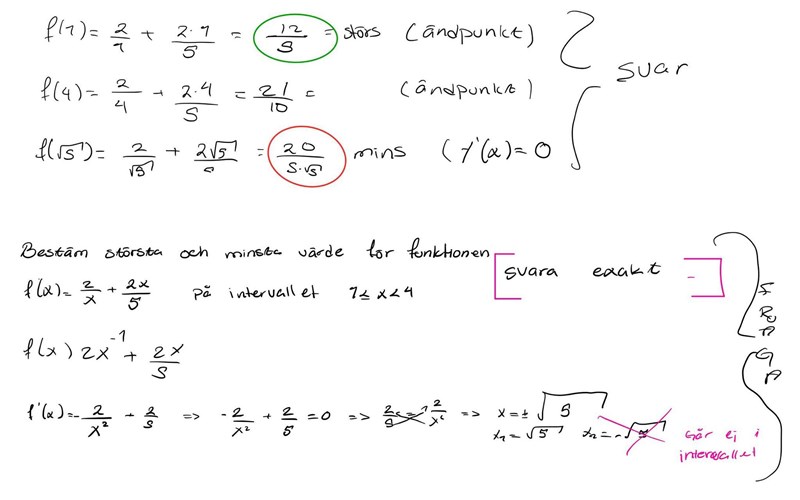 f(1) = 2/1 + 2·1/5 = 12/5 = störs (ändpunkt)
f(4) = 2/4 + 2·4/5 = 21/10 = (ändpunkt)
svar
f(√5) = 2/√5 + 2√5/5 = 20/5·√5 mins (f'(x) = 0
Bestäm största och minsta värde för funktionen
f(x) = 2/x + 2x/5 på intervallet 1 ≤ x < 4
[svara exakt -]
FRÅGA
f(x) 2x^-1 + 2x/5
f'(x) = -2/x² + 2/5 => -2/x² + 2/5 = 0 => 2/5 = 2/x² => x = ± √5
x₁ = √5 x₂ = -√5 Går ej i
intervallet